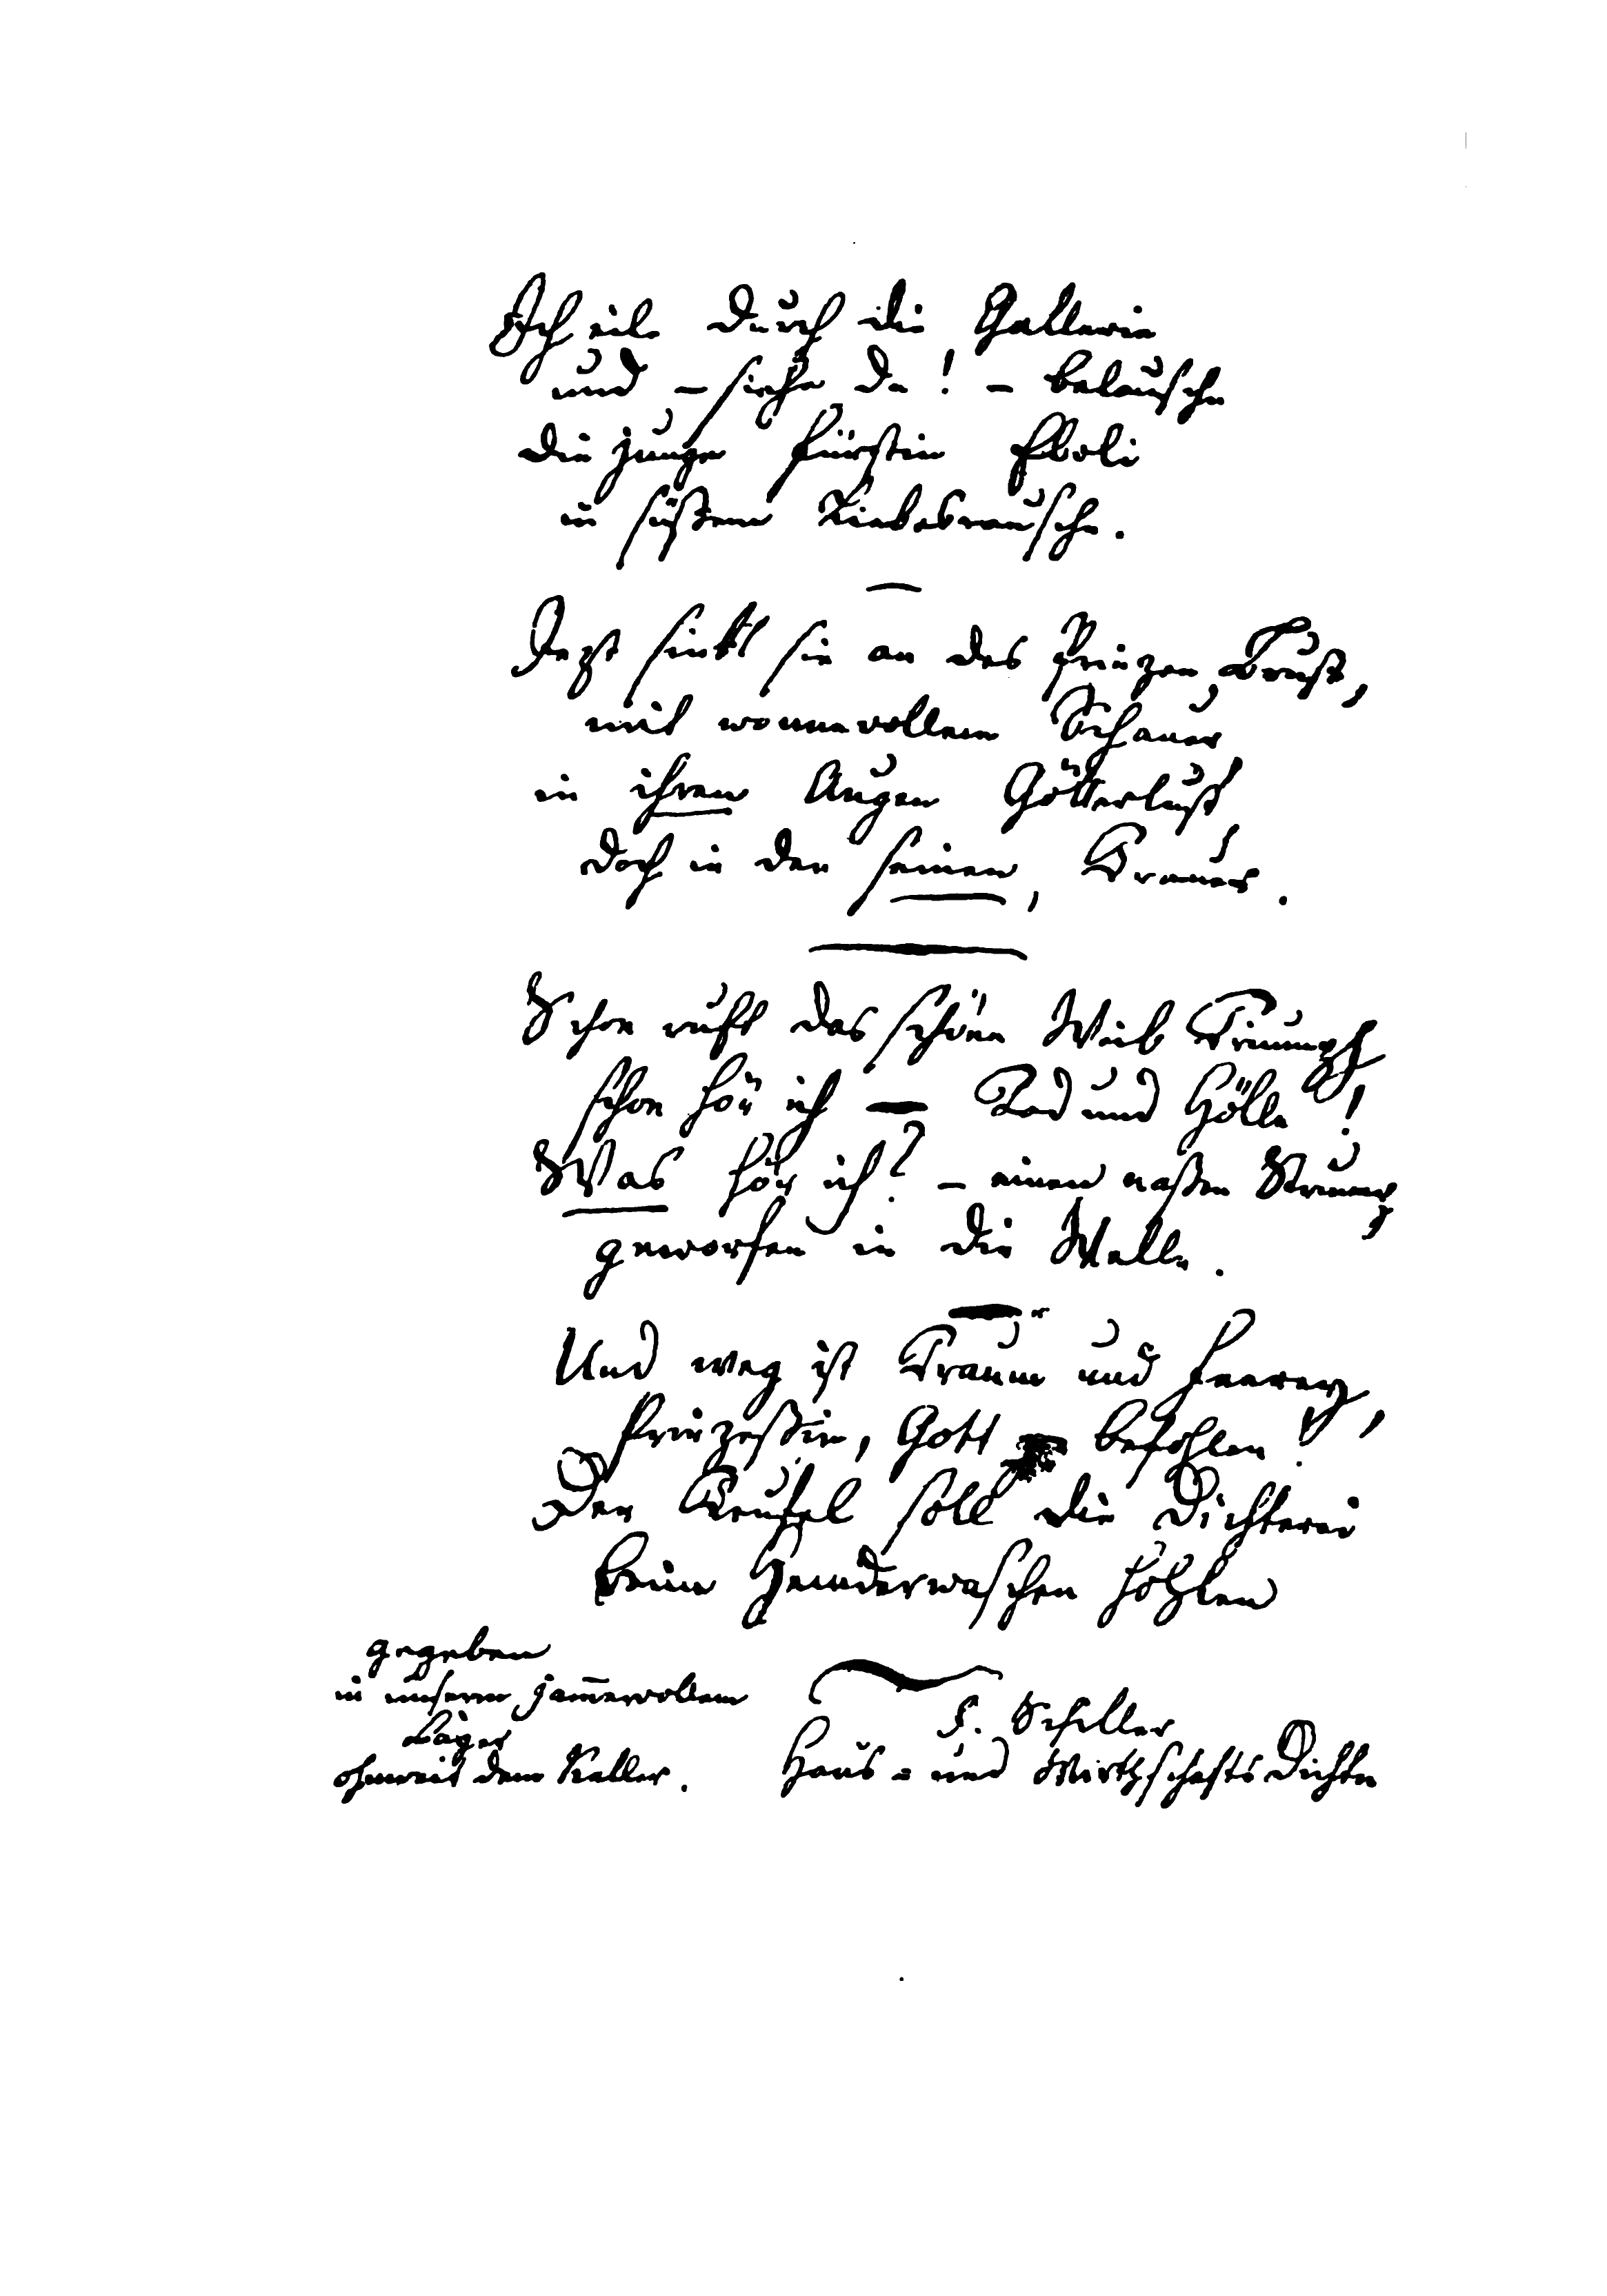 Ich eile durch die Gallerie
und – siehe da! – belausche
die junge Fürstin Eboli
in süßem Liebesrausche.
Jezt sinkt sie an des Prinzen Brust,
mit wonnevollem Schauer
in ihren Augen Götterlust
doch in den seinen, Trauer.
Schon ruft das schöne Weib Triumph
schon hör ich — Tod und Hölle!
Was hör ich? – einen naßen Strumpf
geworfen in die Welle.
Und weg ist Traum und Feerey,
Prinzeßin, Gott befohlen!
Der Teufel soll die Dichterei
beim Hemderwaschen hohlen
gegeben
in unserm jam̅ervollen
Lager
ohnweit dem Keller.
F. Schiller
Haus- und Wirthschafts Dichter